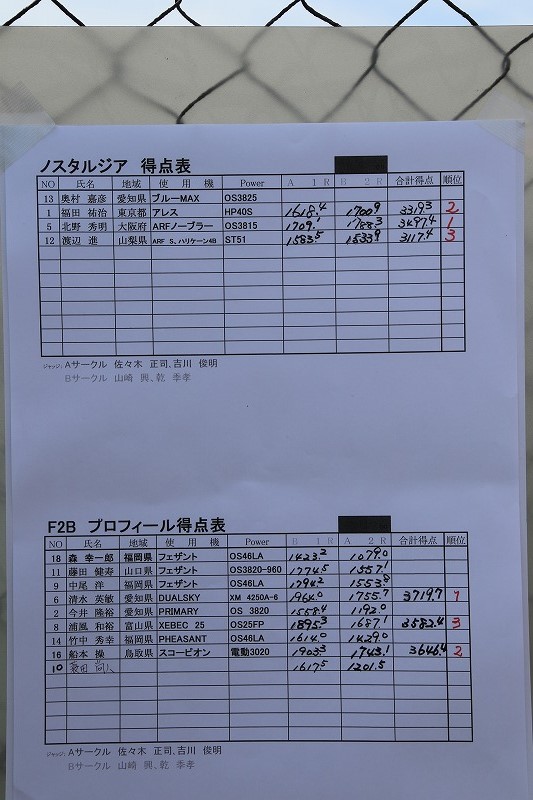 ノスタルジア 得点表
NO 氏名 地域 使用機 Power A 1R B 2R 合計得点 順位
13 奥村 嘉彦 愛知県 ブルーMAX OS3825
1 福田 祐治 東京都 アレス HP40S 1618.4 1700.9 3319.3 2
5 北野 秀明 大阪府 ARFノーブラー OS3815 1709.1 1788.3 3497.4 1
12 渡辺 進 山梨県 ARF S、ハリケーン4B ST51 1583.5 1533.9 3117.4 3
ジャッジ: Aサークル 佐々木 正司、吉川 俊明
Bサークル 山崎 興、乾 季孝
F2B プロフィール得点表
NO 氏名 地域 使用機 Power B 1R A 2R 合計得点 順位
18 森 幸一郎 福岡県 フェザント OS46LA 1423.2 1079.0
11 藤田 健寿 山口県 フェザント OS3820-960 1774.5 1557.1
9 中尾 洋 福岡県 フェザント OS46LA 1794.2 1553.8
6 清水 英敏 愛知県 DUALSKY XM 4250A-6 1964.0 1755.7 3719.7 1
2 今井 隆裕 愛知県 PRIMARY OS 3820 1558.4 1192.0
8 浦風 和裕 富山県 XEBEC 25 OS25FP 1895.3 1687.1 3582.4 3
14 竹中 秀幸 福岡県 PHEASANT OS46LA 1614.0 1429.0
16 船本 操 鳥取県 スコーピオン 電動3020 1903.3 1743.1 3646.4 2
10 1617.5 1201.5
ジャッジ: Aサークル 佐々木 正司、吉川 俊明
Bサークル 山崎 興、乾 季孝